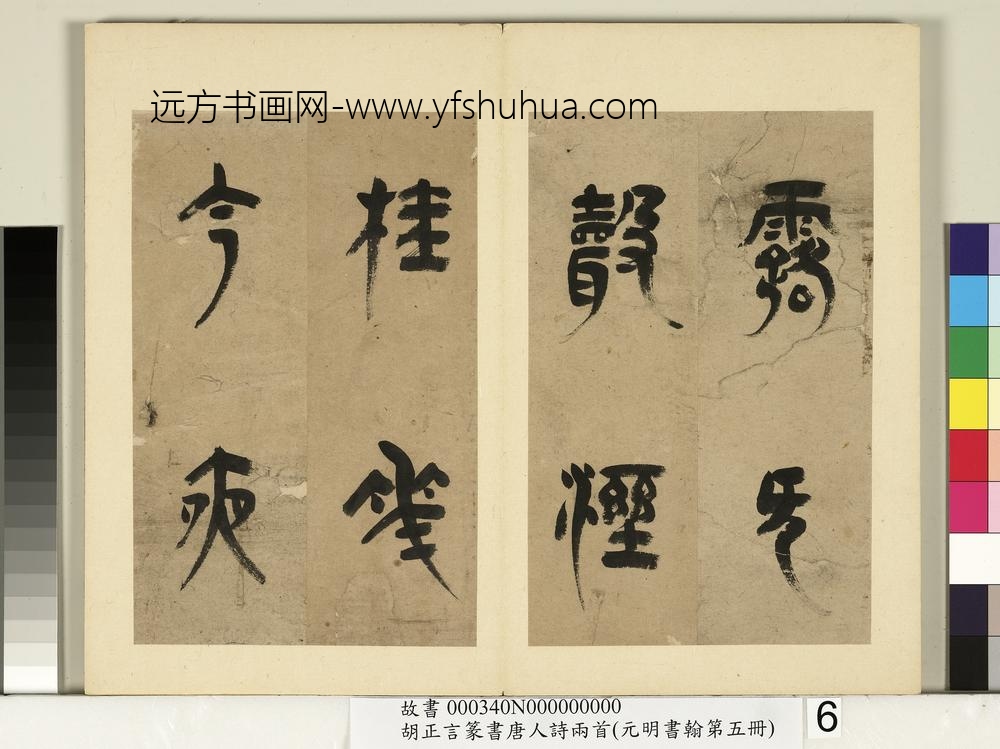 远方书画网-www.yfshuhua.com
露无
聲溼
桂花
今夜
故書 000340N000000000
胡正言篆書唐人詩兩首(元明書翰第五冊)
6